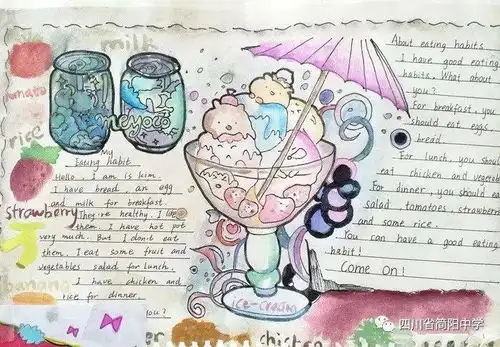 milk
tomato
rice
strawberry
banana
My
Eating Habit
Hello, I am is kim.
I have bread, an egg
and milk for breakfast.
They're healthy. I like
them. I have hot pot
very much. But I don't eat
them. I eat some fruit and
vegetables salad for lunch.
I have chicken and
rice for dinner.
you?
ice-cream
chicken
About eating habits
I have good eating
habits. What about
you?
For breakfast, you
should eat eggs,
bread.
For lunch, you shoul
eat chicken and vegetable
For dinner, you should
salad tomatoes, strawberr
and some rice.
You can have a good eating
habit!
Come On!
四川省简阳中学